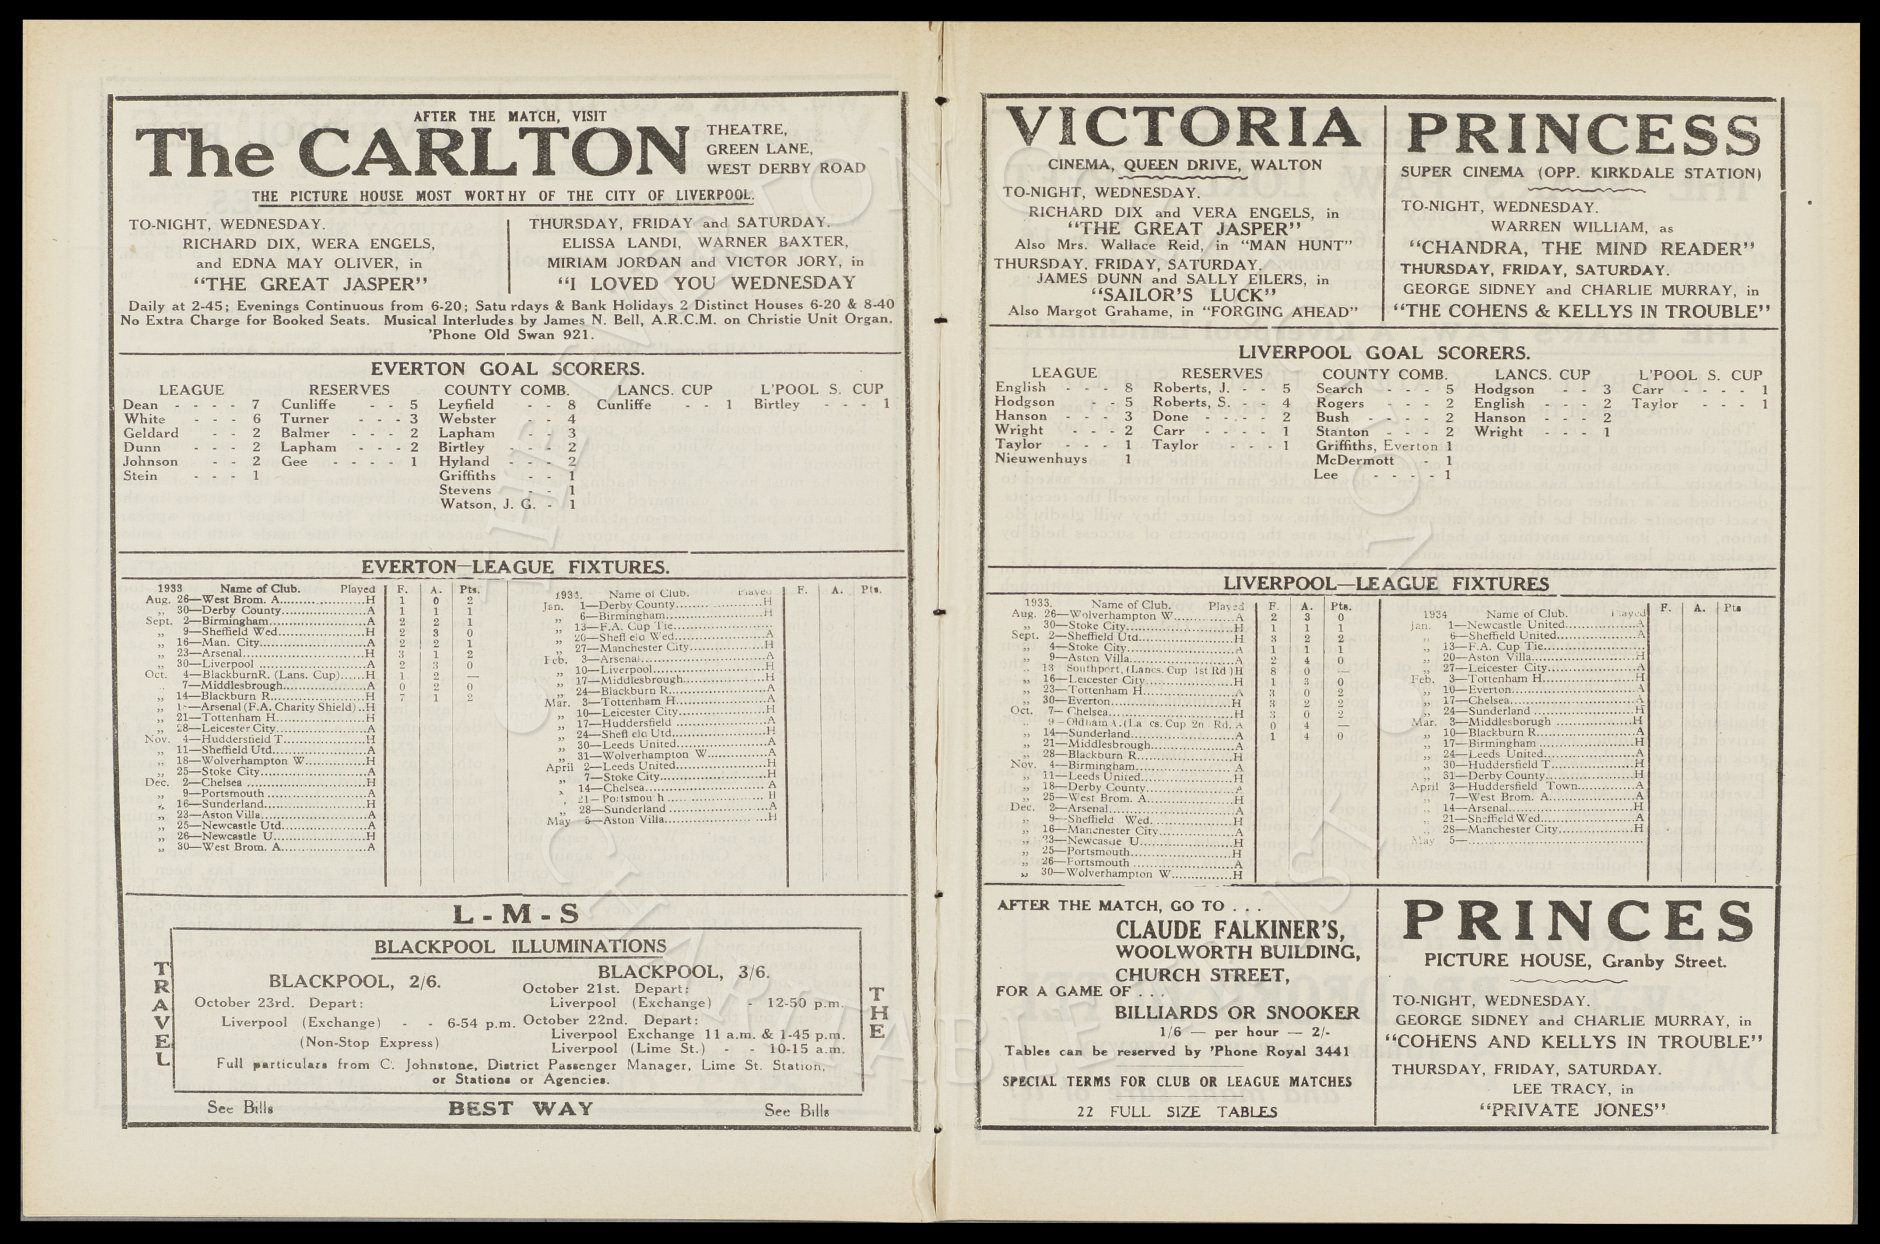 AFTER THE MATCH, VISIT
The CARLTON
THEATRE,
GREEN LANE,
WEST DERBY ROAD
THE PICTURE HOUSE MOST WORTHY OF THE CITY OF LIVERPOOL.
TO-NIGHT, WEDNESDAY.
RICHARD DIX, WERA ENGELS,
and EDNA MAY OLIVER, in
"THE GREAT JASPER"
THURSDAY, FRIDAY and SATURDAY.
ELISSA LANDI, WARNER BAXTER,
MIRIAM JORDAN and VICTOR JORY, in
"I LOVED YOU WEDNESDAY
Daily at 2-45; Evenings Continuous from 6-20; Saturdays & Bank Holidays 2 Distinct Houses 6-20 & 8-40
No Extra Charge for Booked Seats. Musical Interludes by James N. Bell, A.R.C.M. on Christie Unit Organ.
'Phone Old Swan 921.
EVERTON GOAL SCORERS.
LEAGUE RESERVES COUNTY COMB. LANCS. CUP L'POOL S. CUP
Dean - - - - 7 Cunliffe - - 5 Leyfield - - 8 Cunliffe - - 1 Birtley - - - 1
White - - - 6 Turner - - - 3 Webster - - 4
Geldard - - 2 Balmer - - - 2 Lapham - - 3
Dunn - - - 2 Lapham - - - 2 Birtley - - 2
Johnson - - 2 Gee - - - - 1 Hyland - - - 2
Stein - - - 1 Griffiths - - 1
Stevens - - 1
Watson, J. G. - 1
EVERTON—LEAGUE FIXTURES.
1933 Name of Club. Played F. A. Pts.
Aug. 26—West Brom. A. H 1 0 2
,, 30—Derby County A 1 1 1
Sept. 2—Birmingham A 2 2 1
,, 9—Sheffield Wed. H 2 3 0
,, 16—Man. City A 2 2 1
,, 23—Arsenal H 3 1 2
,, 30—Liverpool A 2 3 0
Oct. 4—Blackburn R. (Lans. Cup) H 1 2 —
,, 7—Middlesbrough A 0 2 0
,, 14—Blackburn R. H 7 1 2
,, —Arsenal (F.A. Charity Shield) H
,, 21—Tottenham H. H
,, 28—Leicester City A
Nov. 4—Huddersfield T. H
,, 11—Sheffield Utd. A
,, 18—Wolverhampton W. H
,, 25—Stoke City A
Dec. 2—Chelsea H
,, 9—Portsmouth A
,, 16—Sunderland H
,, 23—Aston Villa A
,, 25—Newcastle Utd. A
,, 26—Newcastle U. H
,, 30—West Brom. A. A
1934. Name of Club. Played F. A. Pts.
Jan. 1—Derby County H
,, 6—Birmingham H
,, 13—F.A. Cup Tie
,, 20—Sheffield Wed. A
,, 27—Manchester City H
Feb. 3—Arsenal A
,, 10—Liverpool H
,, 17—Middlesbrough H
,, 24—Blackburn R. A
Mar. 3—Tottenham H. A
,, 10—Leicester City H
,, 17—Huddersfield A
,, 24—Sheffield Utd. H
,, 30—Leeds United A
,, 31—Wolverhampton W. A
April 2—Leeds United H
,, 7—Stoke City H
,, 14—Chelsea A
,, 21—Portsmouth H
,, 28—Sunderland A
May 5—Aston Villa H
L-M-S
TRAVEL
THE
BLACKPOOL ILLUMINATIONS
BLACKPOOL, 2/6.
October 23rd. Depart:
Liverpool (Exchange) - - 6-54 p.m.
(Non-Stop Express)
BLACKPOOL, 3/6.
October 21st. Depart:
Liverpool (Exchange) - 12-50 p.m.
October 22nd. Depart:
Liverpool Exchange 11 a.m. & 1-45 p.m.
Liverpool (Lime St.) - - 10-15 a.m.
Full particulars from C. Johnstone, District Passenger Manager, Lime St. Station,
or Stations or Agencies.
See Bills BEST WAY See Bills
VICTORIA
CINEMA, QUEEN DRIVE, WALTON
TO-NIGHT, WEDNESDAY.
RICHARD DIX and VERA ENGELS, in
"THE GREAT JASPER"
Also Mrs. Wallace Reid, in "MAN HUNT"
THURSDAY, FRIDAY, SATURDAY.
JAMES DUNN and SALLY EILERS, in
"SAILOR'S LUCK"
Also Margot Grahame, in "FORGING AHEAD"
PRINCESS
SUPER CINEMA (OPP. KIRKDALE STATION)
TO-NIGHT, WEDNESDAY.
WARREN WILLIAM, as
"CHANDRA, THE MIND READER"
THURSDAY, FRIDAY, SATURDAY.
GEORGE SIDNEY and CHARLIE MURRAY, in
"THE COHENS & KELLYS IN TROUBLE"
LIVERPOOL GOAL SCORERS.
LEAGUE RESERVES COUNTY COMB. LANCS. CUP L'POOL S. CUP
English - - - 8 Roberts, J. - - 5 Search - - - 5 Hodgson - - 3 Carr - - - - 1
Hodgson - - 5 Roberts, S. - - 4 Rogers - - - 2 English - - - 2 Taylor - - - 1
Hanson - - - 3 Done - - - - 2 Bush - - - 2 Hanson - - - 2
Wright - - - 2 Carr - - - - 1 Stanton - - - 2 Wright - - - 1
Taylor - - - 1 Taylor - - - 1 Griffiths, Everton 1
Nieuwenhuys 1 McDermott - 1
Lee - - - - 1
LIVERPOOL—LEAGUE FIXTURES
1933. Name of Club. Played F. A. Pts.
Aug. 26—Wolverhampton W. A 2 3 0
,, 30—Stoke City H 1 1 1
Sept. 2—Sheffield Utd H 3 2 2
,, 4—Stoke City A 1 1 1
,, 9—Aston Villa A 2 4 0
,, 13 Southport, (Lancs. Cup 1st Rd) H 8 0 —
,, 16—Leicester City H 1 3 0
,, 23—Tottenham H. A 3 0 2
,, 30—Everton H 3 2 2
Oct. 7—Chelsea H 3 0 2
,, 9—Oldham A. (La cs. Cup 2n Rd. A 0 4 —
,, 14—Sunderland A 1 4 0
,, 21—Middlesbrough A
,, 28—Blackburn R. H
Nov. 4—Birmingham A
,, 11—Leeds United H
,, 18—Derby County A
,, 25—West Brom. A. H
Dec. 2—Arsenal A
,, 9—Sheffield Wed. H
,, 16—Manchester City A
,, 23—Newcastle U. H
,, 25—Portsmouth H
,, 26—Portsmouth A
,, 30—Wolverhampton W. H
1934 Name of Club. Played F. A. Pts
Jan. 1—Newcastle United A
,, 6—Sheffield United A
,, 13—F.A. Cup Tie
,, 20—Aston Villa H
,, 27—Leicester City A
Feb. 3—Tottenham H. H
,, 10—Everton A
,, 17—Chelsea A
,, 24—Sunderland H
Mar. 3—Middlesborough H
,, 10—Blackburn R. A
,, 17—Birmingham H
,, 24—Leeds United A
,, 30—Huddersfield T. H
,, 31—Derby County H
April 3—Huddersfield Town A
,, 7—West Brom. A. A
,, 14—Arsenal H
,, 21—Sheffield Wed. A
,, 28—Manchester City H
May 5—
AFTER THE MATCH, GO TO . . .
CLAUDE FALKINER'S,
WOOLWORTH BUILDING,
CHURCH STREET,
FOR A GAME OF . . .
BILLIARDS OR SNOOKER
1/6 — per hour — 2/-
Tables can be reserved by 'Phone Royal 3441
SPECIAL TERMS FOR CLUB OR LEAGUE MATCHES
22 FULL SIZE TABLES
PRINCES
PICTURE HOUSE, Granby Street.
TO-NIGHT, WEDNESDAY.
GEORGE SIDNEY and CHARLIE MURRAY, in
"COHENS AND KELLYS IN TROUBLE"
THURSDAY, FRIDAY, SATURDAY.
LEE TRACY, in
"PRIVATE JONES"
THE EVERTON COLLECTION CHARITABLE TRUST